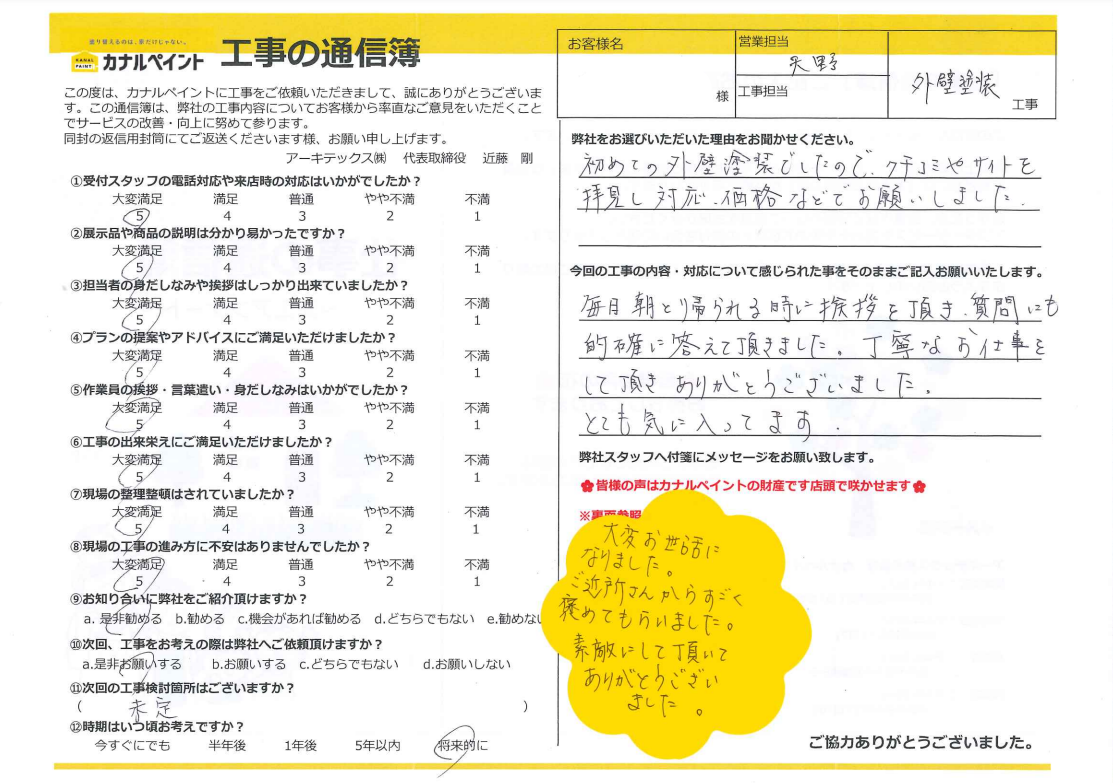 塗り替えるのは、家だけじゃない。
KANAL PAINT カナルペイント 工事の通信簿
この度は、カナルペイントに工事をご依頼いただきまして、誠にありがとうございま
す。この通信簿は、弊社の工事内容についてお客様から率直なご意見をいただくこと
でサービスの改善・向上に努めて参ります。
同封の返信用封筒にてご返送くださいます様、お願い申し上げます。
アーキテックス㈱ 代表取締役 近藤 剛
①受付スタッフの電話対応や来店時の対応はいかがでしたか？
大変満足 満足 普通 やや不満 不満
5 4 3 2 1
②展示品や商品の説明は分かり易かったですか？
大変満足 満足 普通 やや不満 不満
5 4 3 2 1
③担当者の身だしなみや挨拶はしっかり出来ていましたか？
大変満足 満足 普通 やや不満 不満
5 4 3 2 1
④プランの提案やアドバイスにご満足いただけましたか？
大変満足 満足 普通 やや不満 不満
5 4 3 2 1
⑤作業員の挨拶・言葉遣い・身だしなみはいかがでしたか？
大変満足 満足 普通 やや不満 不満
5 4 3 2 1
⑥工事の出来栄えにご満足いただけましたか？
大変満足 満足 普通 やや不満 不満
5 4 3 2 1
⑦現場の整理整頓はされていましたか？
大変満足 満足 普通 やや不満 不満
5 4 3 2 1
⑧現場の工事の進み方に不安はありませんでしたか？
大変満足 満足 普通 やや不満 不満
5 4 3 2 1
⑨お知り合いに弊社をご紹介頂けますか？
a. 是非勧める b.勧める c.機会があれば勧める d.どちらでもない e.勧めない
⑩次回、工事をお考えの際は弊社へご依頼頂けますか？
a.是非お願いする b.お願いする c.どちらでもない d.お願いしない
⑪次回の工事検討箇所はございますか？
( 未定 )
⑫時期はいつ頃お考えですか？
今すぐにでも 半年後 1年後 5年以内 将来的に
お客様名 様
営業担当 矢野
工事担当
外壁塗装 工事
弊社をお選びいただいた理由をお聞かせください。
初めての外壁塗装でしたので、クチコミやサイトを
拝見し対応、価格などでお願いしました.
今回の工事の内容・対応について感じられた事をそのままご記入お願いいたします。
毎日朝と帰られる時に挨拶を頂き、質問にも
的確に答えて頂きました。丁寧なお仕事を
して頂きありがとうございました。
とても気に入ってます.
弊社スタッフへ付箋にメッセージをお願い致します。
皆様の声はカナルペイントの財産です店頭で咲かせます
※裏面参照
大変お世話に
なりました。
ご近所さんからすごく
褒めてもらいました。
素敵にして頂いて
ありがとうござい
ました。
ご協力ありがとうございました。